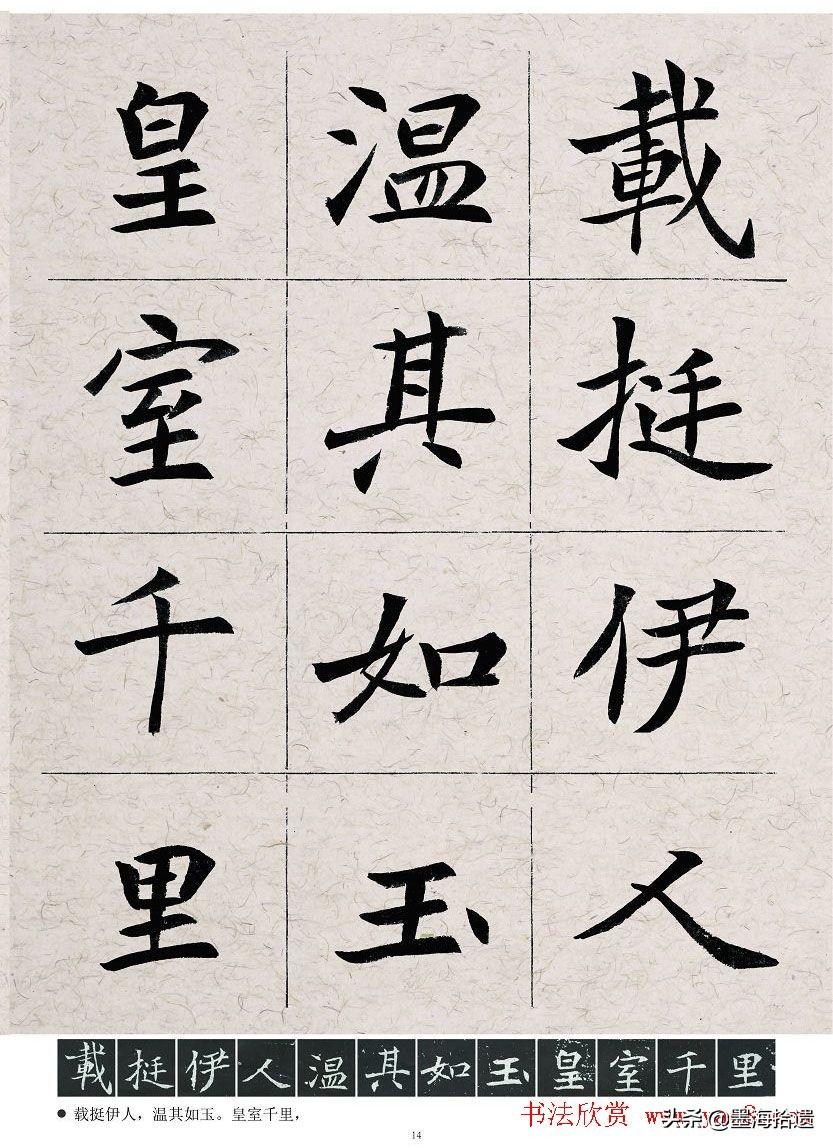 載挺伊人
温其如玉
皇室千里
載挺伊人温其如玉皇室千里
● 载挺伊人，温其如玉。皇室千里，
书法欣赏
头条@墨海拾遗
14